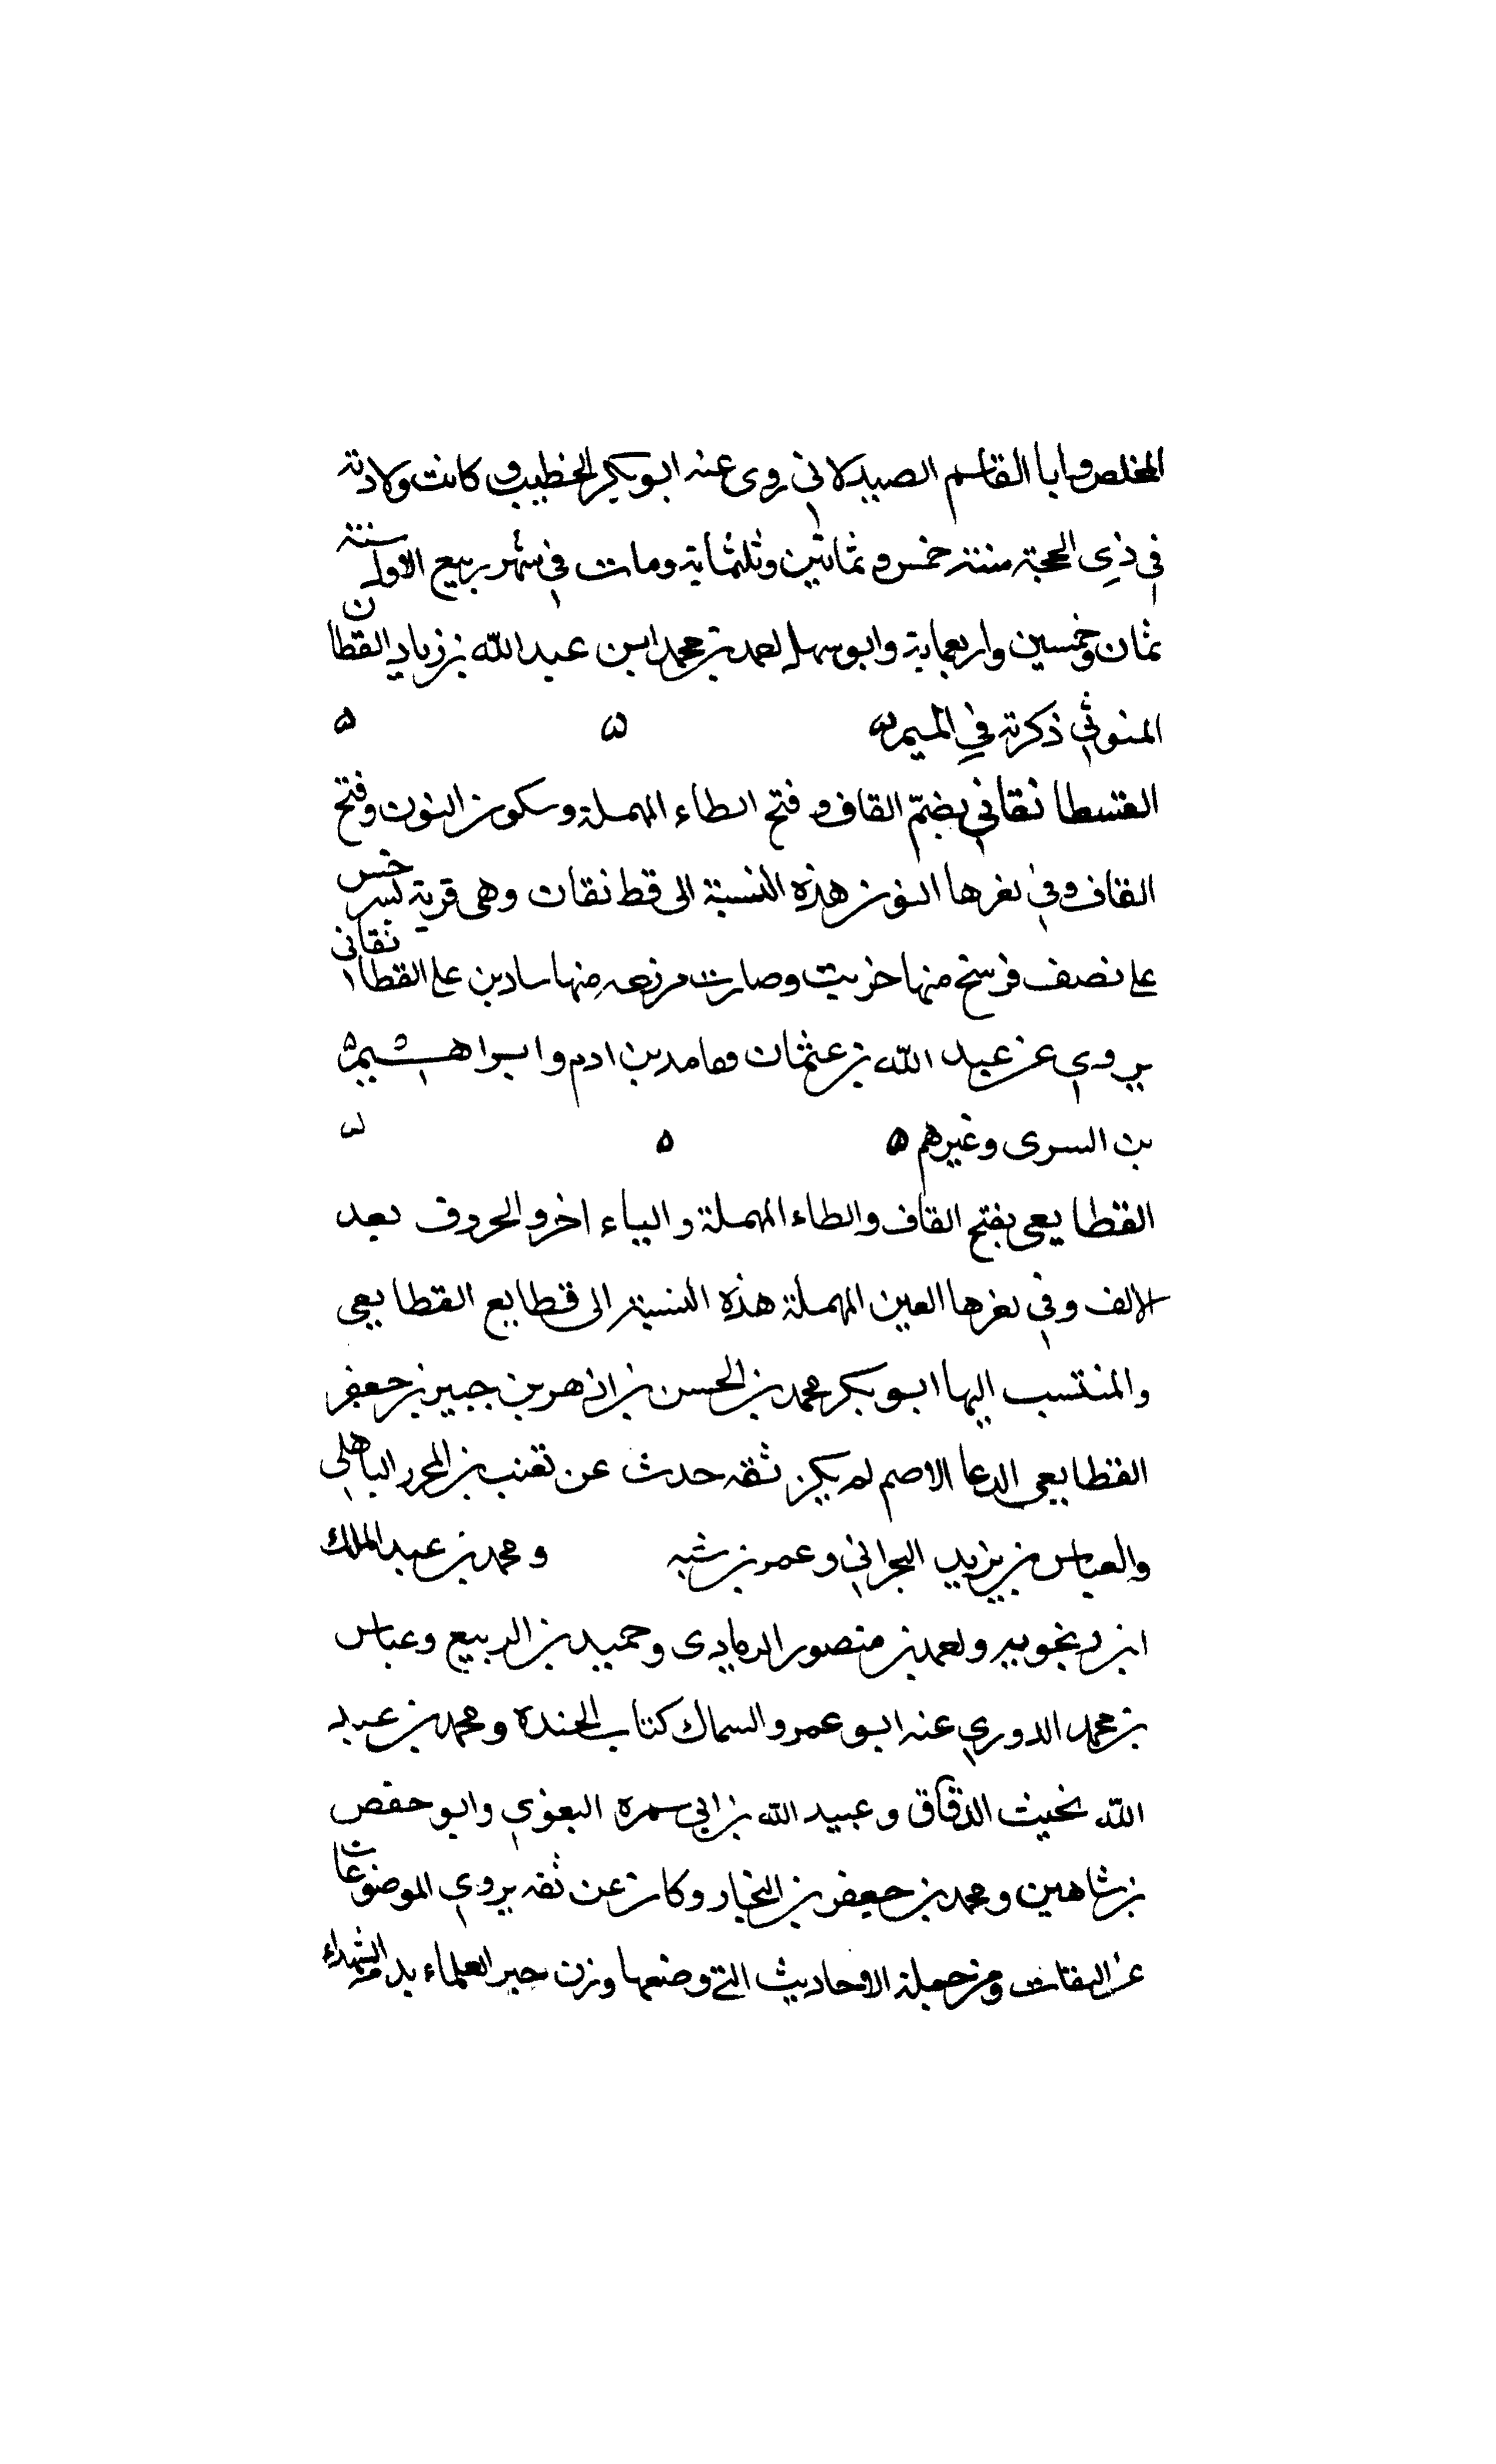 المخلص وابا القاسم الصيدلاني روى عنه ابو بكر الخطيب وكانت ولادته
في ذي الحجة سنة خمس وثمانين وثلثماية ومات في شهر ربيع الاول سنة
ثمان وخمسين واربعماية وابو سهل احمد بن محمد ابن عبد الله بن زياد القطان
المنوثي ذكرته في الميم ه ه ه
القسطا نقاني بضم القاف وفتح الطاء المهملة وسكون النون وفتح
القاف وفي اخرها النون هذه النسبة الى قطانقان وهى قرية بسرخس
على نصف فرسخ منها خربت وصارت مزرعه منها سادبن على القطانقانى
يروي عن عبد الله بن عثمان وحامد بن ادم وابراهيم
بن السرى وغيرهم ه ه ه
القطايعى بفتح القاف والطاء المهملة والياء اخر والحروف بعد
الالف وفي اخرها العين المهملة هذه النسبة الى قطايع القطايعي
والمنتسب اليها ابو بكر محمد بن الحسن بن ازهر بن جبير بن جعفر
القطايعى الدعا الاصم لم يكن ثقه حدث عن قعنب بن المحرر الباهلي
والعباس بن يزيد البحراني وعمر بن شبه ومحمد بن عبد الملك
ابن زنجويه واحمد بن منصور الرمادى وحميد بن الربيع وعباس
بن محمد الدوري عنه ابو عمرو السماك كتاب الحندة ومحمد بن عبد
الله بخيت الدقاق وعبيد الله بن ابي سمره البغوي وابو حفص
بن شاهين ومحمد بن جعفر بن النجار وكان عن ثقه يروي الموضوعات
عن الثقات ومن جملة الاحاديث التي وضعها وزن حبر العلماء بدم الشهداء